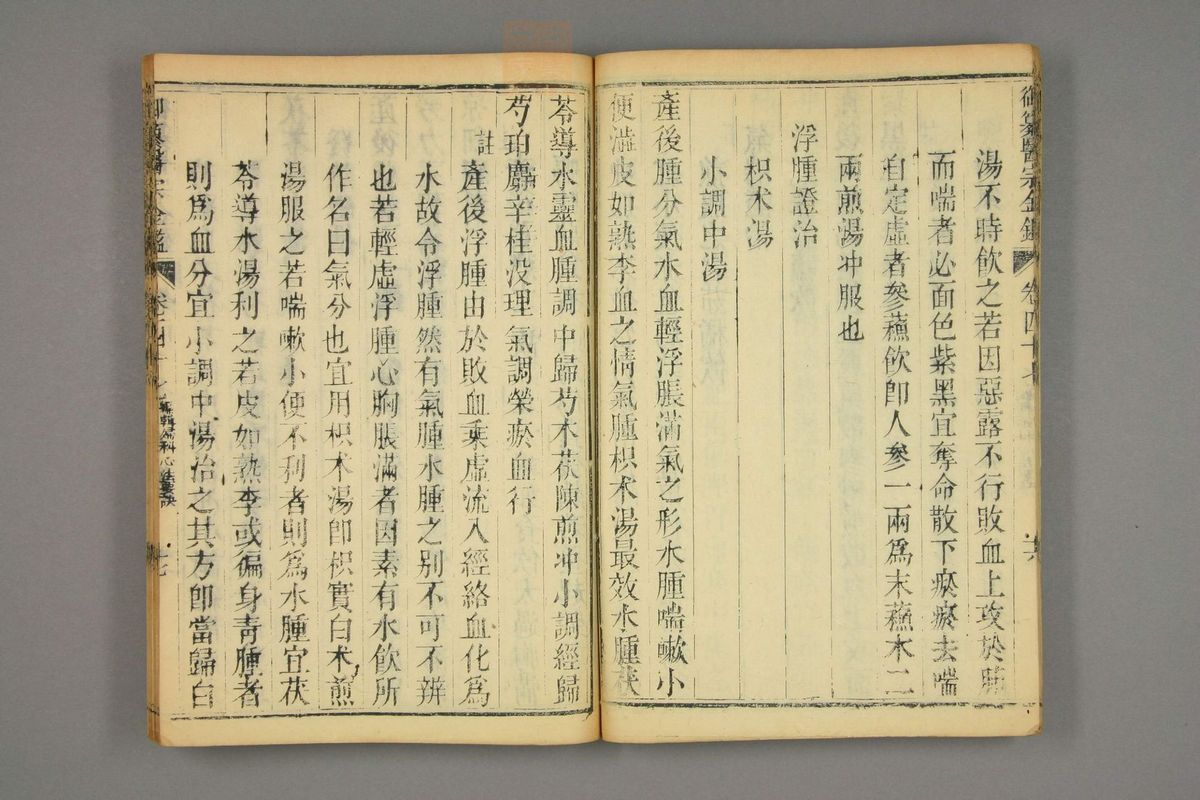 御纂醫宗金鑑 卷四十七
湯不時飲之若因惡露不行敗血上攻於肺
而喘者必面色紫黑宜奪命散下瘀瘀去喘
自定虛者參蘇飲卽人參一兩爲末蘇木二
兩煎湯冲服也
浮腫證治
枳朮湯
小調中湯
產後腫分氣水血輕浮脹滿氣之形水腫喘嗽小
便澁皮如熟李血之情氣腫枳朮湯最效水腫茯
苓導水靈血腫調中歸芍朮茯陳煎冲小調經歸
芍珀麝辛桂没理氣調榮瘀血行
註
產後浮腫由於敗血乘虛流入經絡血化爲
水故令浮腫然有氣腫水腫之别不可不辨
也若輕虛浮腫心胸脹滿者因素有水飲所
作名曰氣分也宜用枳朮湯卽枳實白朮煎
湯服之若喘嗽小便不利者則爲水腫宜茯
苓導水湯利之若皮如熟李或徧身青腫者
則爲血分宜小調中湯治之其方卽當歸白
御纂醫宗金鑑 編輯婦科心法要訣